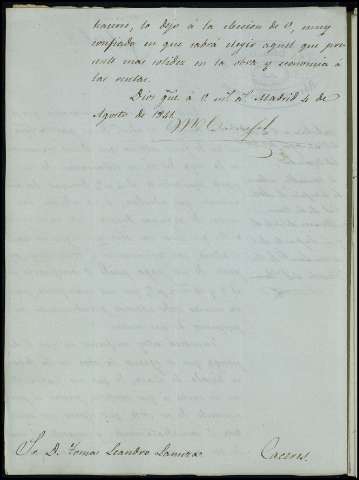 hacerse, lo dejo á la eleccion de V, muy
confiado en que sabrá elegir aquel que pre
sente mas solidez en la obra y economía á
las rentas.
Dios gũe á V. m.s a.s Madrid 4 de
Agosto de 1841.
Sr. D. Tomas Leandro
Caceres.